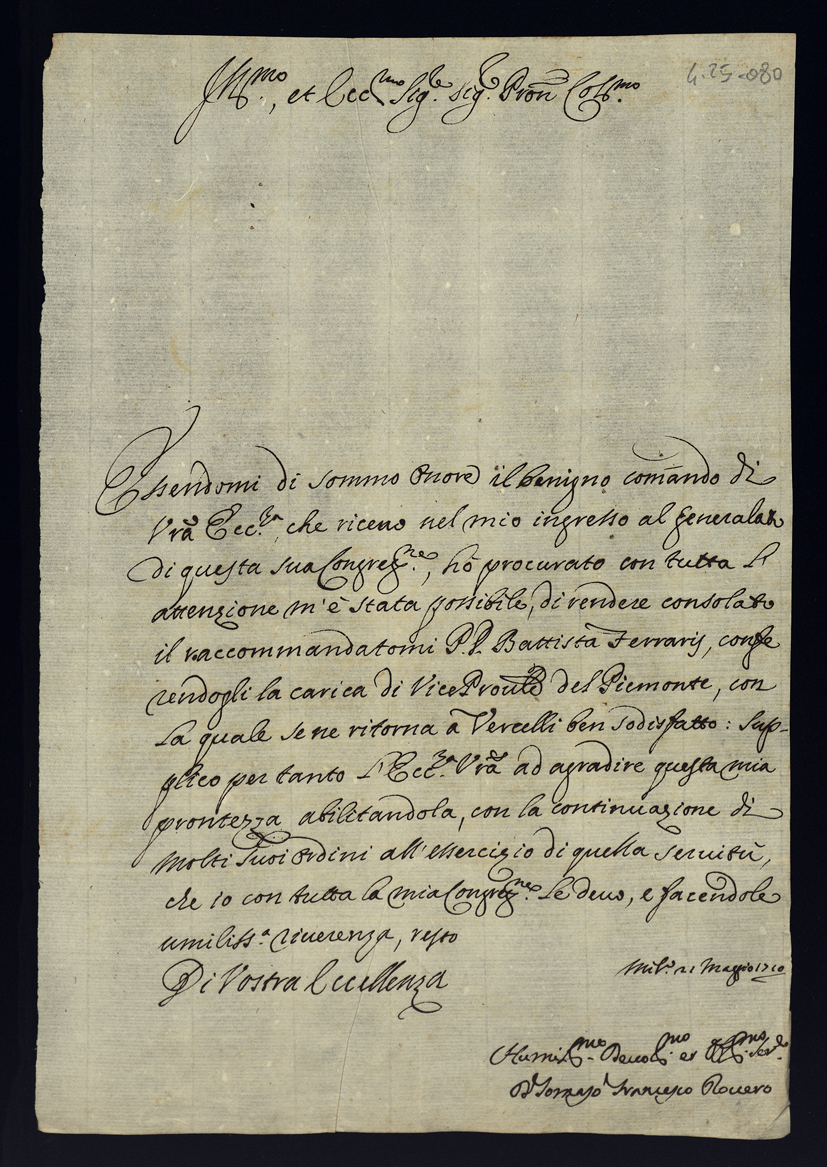 4-25-080
Ill.mo, et Ecc.mo Sig.re Sig.r Pron Col.mo
Essendomi di sommo onore il benigno comando di
Vrã Ecc.za, che riceuo nel mio ingresso al generalato
di questa sua Congreg.ne, hò procurato con tutta l'
attenzione m'è stata possibile, di rendere consolato
il raccommandatomi P.D. Battista Ferraris, confe
rendogli la carica di ViceProule del Piemonte, con
la quale se ne ritorna à Vercelli ben sodisfatto: Sup-
plico per tanto l'Ecc.za Vrã ad agradire questa mia
prontezza abilitandola, con la continuazione di
molti suoi ordini all'essercizio di quella seruitù,
che io con tutta la mia Congreg.ne le deuo, e facendole
umiliss.a riuerenza, resto
Di Vostra Eccellenza
Mil.o 21 Maggio 1710
Humil.mo Deuot.mo et Obl.mo Ser.e
D. Tomaso Francesco Rouero